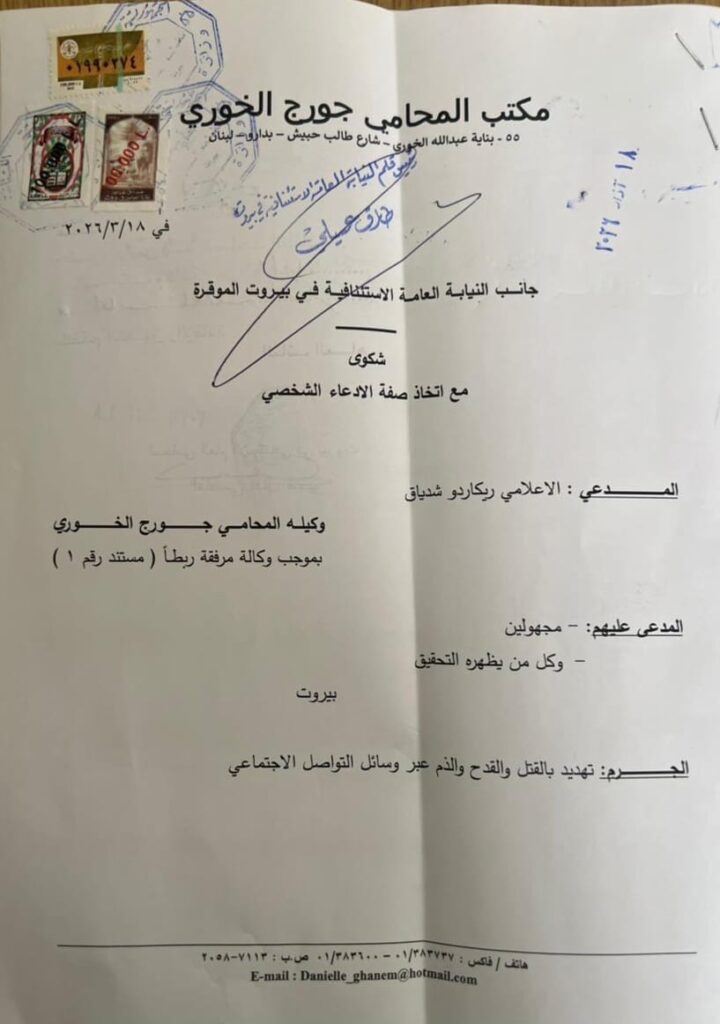 ٠١٩٩٠٢٧٤
مكتب المحامي جورج الخوري
٥٥ - بناية عبدالله الخوري – شارع طالب حبيش – بدارو – لبنان
رئيس قلم النيابة العامة الاستئنافية في بيروت
١٨ آذار ٢٠٢٦
في ٢٠٢٦/٣/١٨
جانب النيابة العامة الاستئنافية في بيروت الموقرة
شكوى
مع اتخاذ صفة الادعاء الشخصي
المدعي : الاعلامي ريكاردو شدياق
وكيله المحامي جورج الخوري
بموجب وكالة مرفقة ربطاً ( مستند رقم ١ )
المدعى عليهم: - مجهولين
- وكل من يظهره التحقيق
بيروت
الجرم: تهديد بالقتل والقدح والذم عبر وسائل التواصل الاجتماعي
هاتف / فاكس : ٠١/٣٨٣٧٣٧ – ٠١/٣٨٣٦٠٠ ص.ب : ٧١١٣-٢٠٥٨
E-mail : Danielle_ghanem@hotmail.com